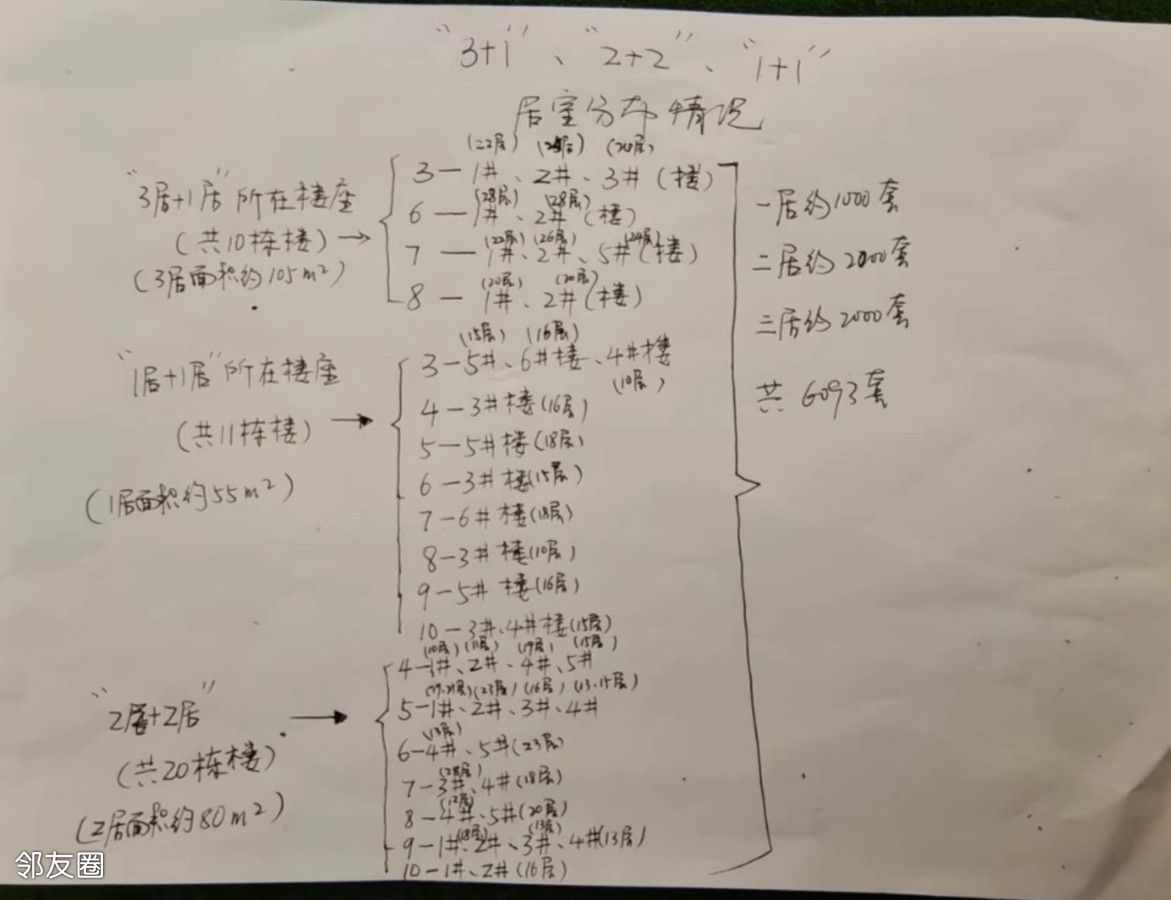 "3+1"、"2+2"、"1+1"
居室分布情况
"3居+1居"所在楼座
(共10栋楼)→
(3居面积约105m²)
(22层) (20层)
3-1#、2#、3#(楼)
(28层) (28层)
6-1#、2#(楼)
(22层) (26层) (24层)
7-1#、2#、5#(楼)
(20层) (20层)
8-1#、2#(楼)
"1居+1居"所在楼座
(共11栋楼)→
(1居面积约55m²)
(15层) (16层)
3-5#、6#楼、4#楼
(10层)
4-3#楼(16层)
5-5#楼(18层)
6-3#楼(15层)
7-6#楼(18层)
8-3#楼(10层)
9-5#楼(16层)
10-3#、4#楼(15层)
"2居+2居"
(共20栋楼)→
(2居面积约80m²)
(10层) (11层) (19层) (15层)
4-1#、2#、4#、5#
(19.21层) (23层) (16层) (13.15层)
5-1#、2#、3#、4#
(13层)
6-4#、5#(23层)
(28层)
7-3#、4#(18层)
(12层)
8-4#、5#(20层)
(18层) (13层)
9-1#、2#、3#、4#(13层)
10-1#、2#(16层)
一居约1000套
二居约2000套
三居约2000套
共6093套
邻友圈